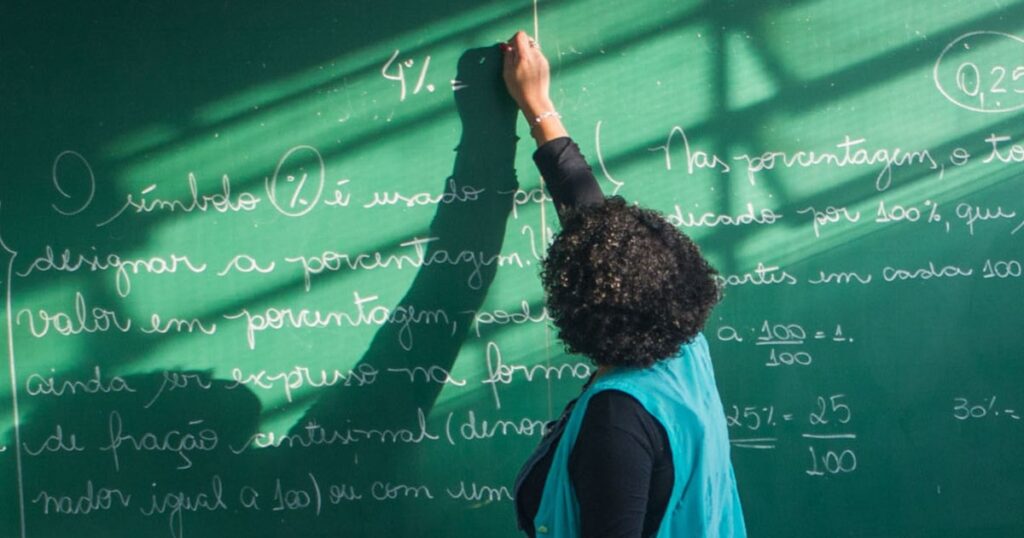 4% =
O símbolo % é usado pa
designar a porcentagem. O
valor em porcentagem, pode
ainda ser expresso na forma
de fração centesimal (denomi
nador igual a 100) ou com um
0,25
Nas porcentagem, o to
indicado por 100%, que
partes em cada 100
a 100/100 = 1.
25% = 25/100
30% =